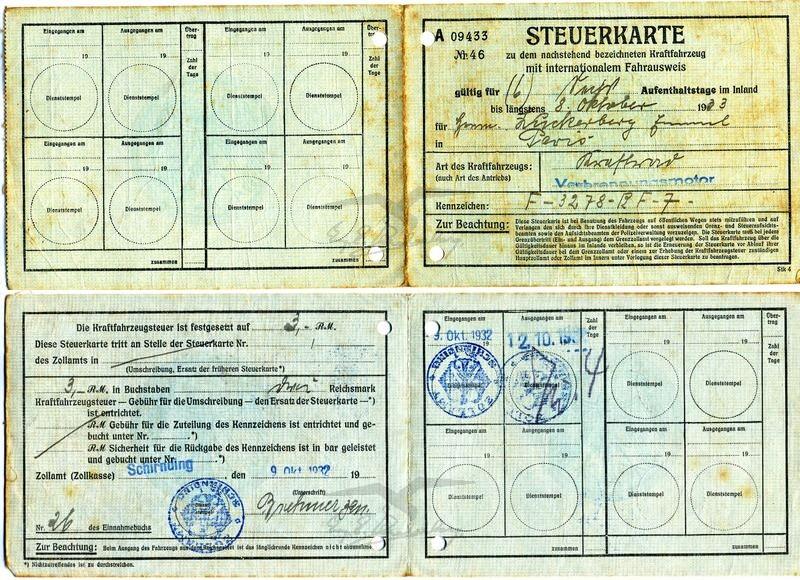 Eingegangen am Ausgegangen am Über-trag Eingegangen am Ausgegangen am Über-trag
19 19 Zahl der Tage 19 19 Zahl der Tage
Dienststempel Dienststempel Dienststempel Dienststempel
Eingegangen am Ausgegangen am Eingegangen am Ausgegangen am
19 19 19 19
Dienststempel Dienststempel Dienststempel Dienststempel
zusammen zusammen
A 09433
№ 46
STEUERKARTE
zu dem nachstehend bezeichneten Kraftfahrzeug
mit internationalem Fahrausweis
gültig für (6) Aufenthaltstage im Inland
bis längstens 8. Oktober 1933
für Herrn Zuckerberg
in Paris
Art des Kraftfahrzeugs: Kraftrad
(auch Art des Antriebs) Verbrennungsmotor
Kennzeichen: F-3278-RF-7-
Zur Beachtung: Diese Steuerkarte ist bei Benutzung des Fahrzeugs auf öffentlichen Wegen stets mitzuführen und auf
Verlangen den sich durch ihre Dienstkleidung oder sonst ausweisenden Grenz- und Steueraufsichts-
beamten sowie den Aufsichtsbeamten der Polizeiverwaltung vorzuzeigen. Die Steuerkarte muß bei jedem
Grenzübertritt (Ein- und Ausgang) dem Grenzzollamt vorgelegt werden. Soll das Kraftfahrzeug über die
Gültigkeitsdauer hinaus im Inlande verbleiben, so ist die Erneuerung der Steuerkarte vor Ablauf ihrer
Gültigkeitsdauer bei dem Grenzzollamt oder einem zur Erhebung der Kraftfahrzeugsteuer zuständigen
Hauptzollamt oder Zollamt im Innern unter Vorlegung dieser Steuerkarte zu beantragen.
Stk 4
Die Kraftfahrzeugsteuer ist festgesetzt auf 3,- RM.
Diese Steuerkarte tritt an Stelle der Steuerkarte Nr.
des Zollamts in
(Umschreibung, Ersatz der früheren Steuerkarte*)
3,- RM, in Buchstaben drei Reichsmark
Kraftfahrzeugsteuer — Gebühr für die Umschreibung — den Ersatz der Steuerkarte —*)
ist entrichtet.
RM Gebühr für die Zuteilung des Kennzeichens ist entrichtet und ge-
bucht unter Nr. *)
RM Sicherheit für die Rückgabe des Kennzeichens ist in bar geleistet
und gebucht unter Nr. *)
Zollamt (Zollkasse) Schirnding, den 9 Okt 1932 19
(Unterschrift)
Nr. 26 des Einnahmebuchs
Zur Beachtung: Beim Ausgang des Fahrzeugs aus dem ist das länglichrunde Kennzeichen nicht abzunehmen
*) Nichtzutreffendes ist zu durchstreichen.
Eingegangen am Ausgegangen am Zahl der Tage Eingegangen am Ausgegangen am Über-trag
9. Okt. 1932 12.10. 19 19 Zahl der Tage
4
SCHIRNDING
Dienststempel Dienststempel
Eingegangen am Ausgegangen am Eingegangen am Ausgegangen am
19 19 19 19
Dienststempel Dienststempel Dienststempel Dienststempel
zusammen zusammen